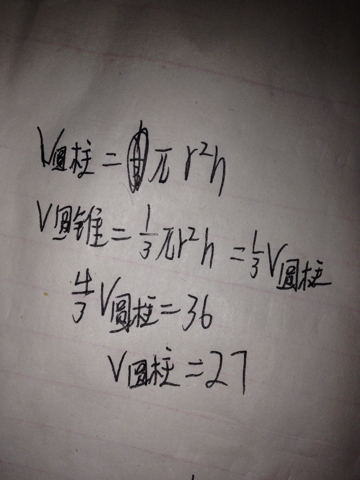 V圆柱=πr²h
V圆锥=1/3πr²h=1/3V圆柱
4/3V圆柱=36
V圆柱=27